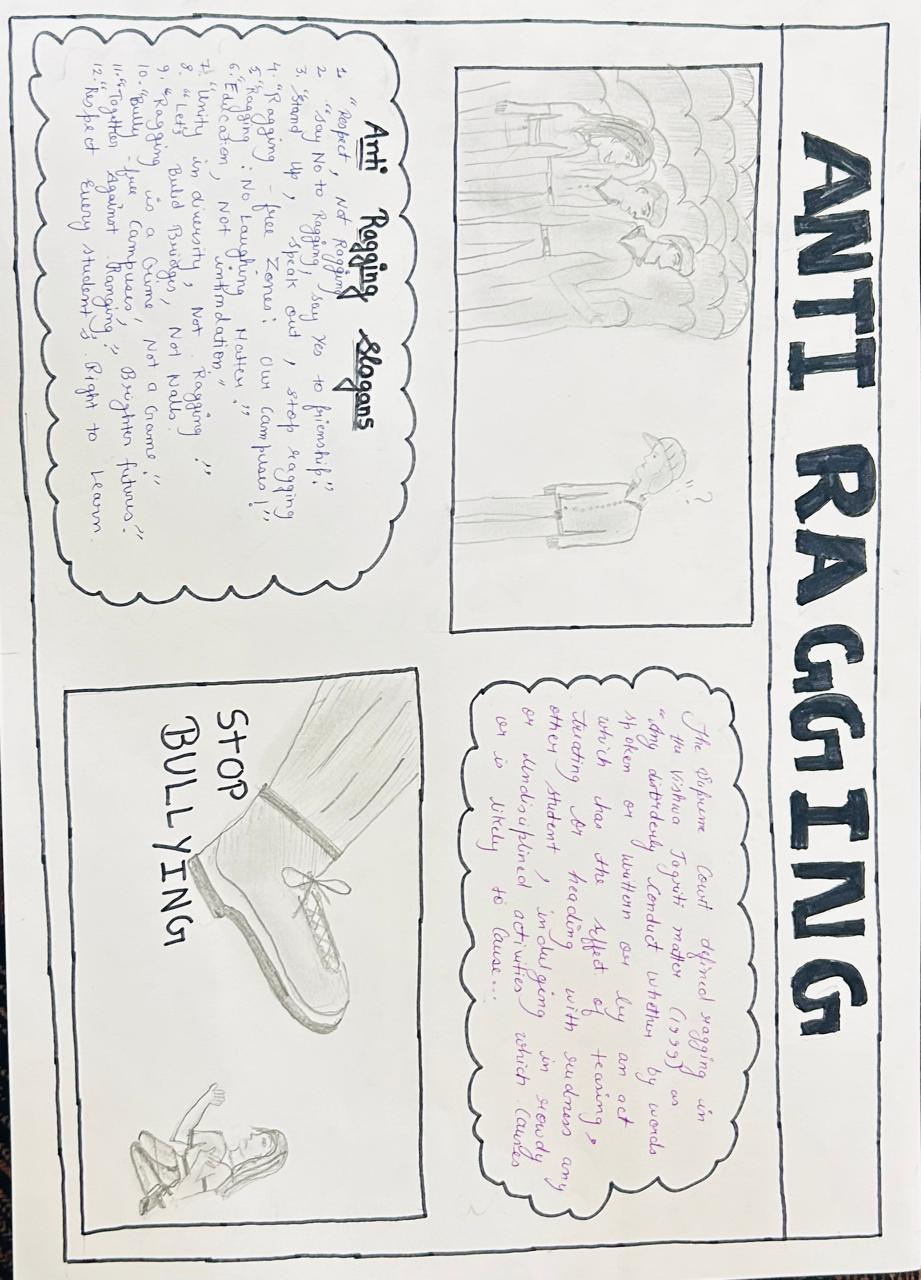 ANTI RAGGING
? ! !
The Supreme Court defined ragging in
the Vishwa Jagriti matter (1999) as
"Any disorderly conduct whether by words
spoken or written or by an act
which has the effect of teasing,
treating or heading with rudness any
other student, indulging in rowdy
or undisciplined activities which causes
or is likely to cause...
Anti Ragging Slogans
1. "Respect, Not Ragging
2. "Say No to Ragging, say yes to frienship."
3. "Stand up, speak out, stop ragging
4. "Ragging - free Zones: our Campuses!"
5. "Ragging: No Laughing Matter."
6. "Education, Not intimdation"
7. "Unity in diversity, Not Ragging"
8. "Let's Bulid Bridges, Not Walls.
9. "Ragging is a Crime, Not a Game."
10. "Bully - free Campuses, Brighter futures."
11. "Together Against Ranging."
12. "Respect Every student's Right to Learn.
STOP
BULLYING